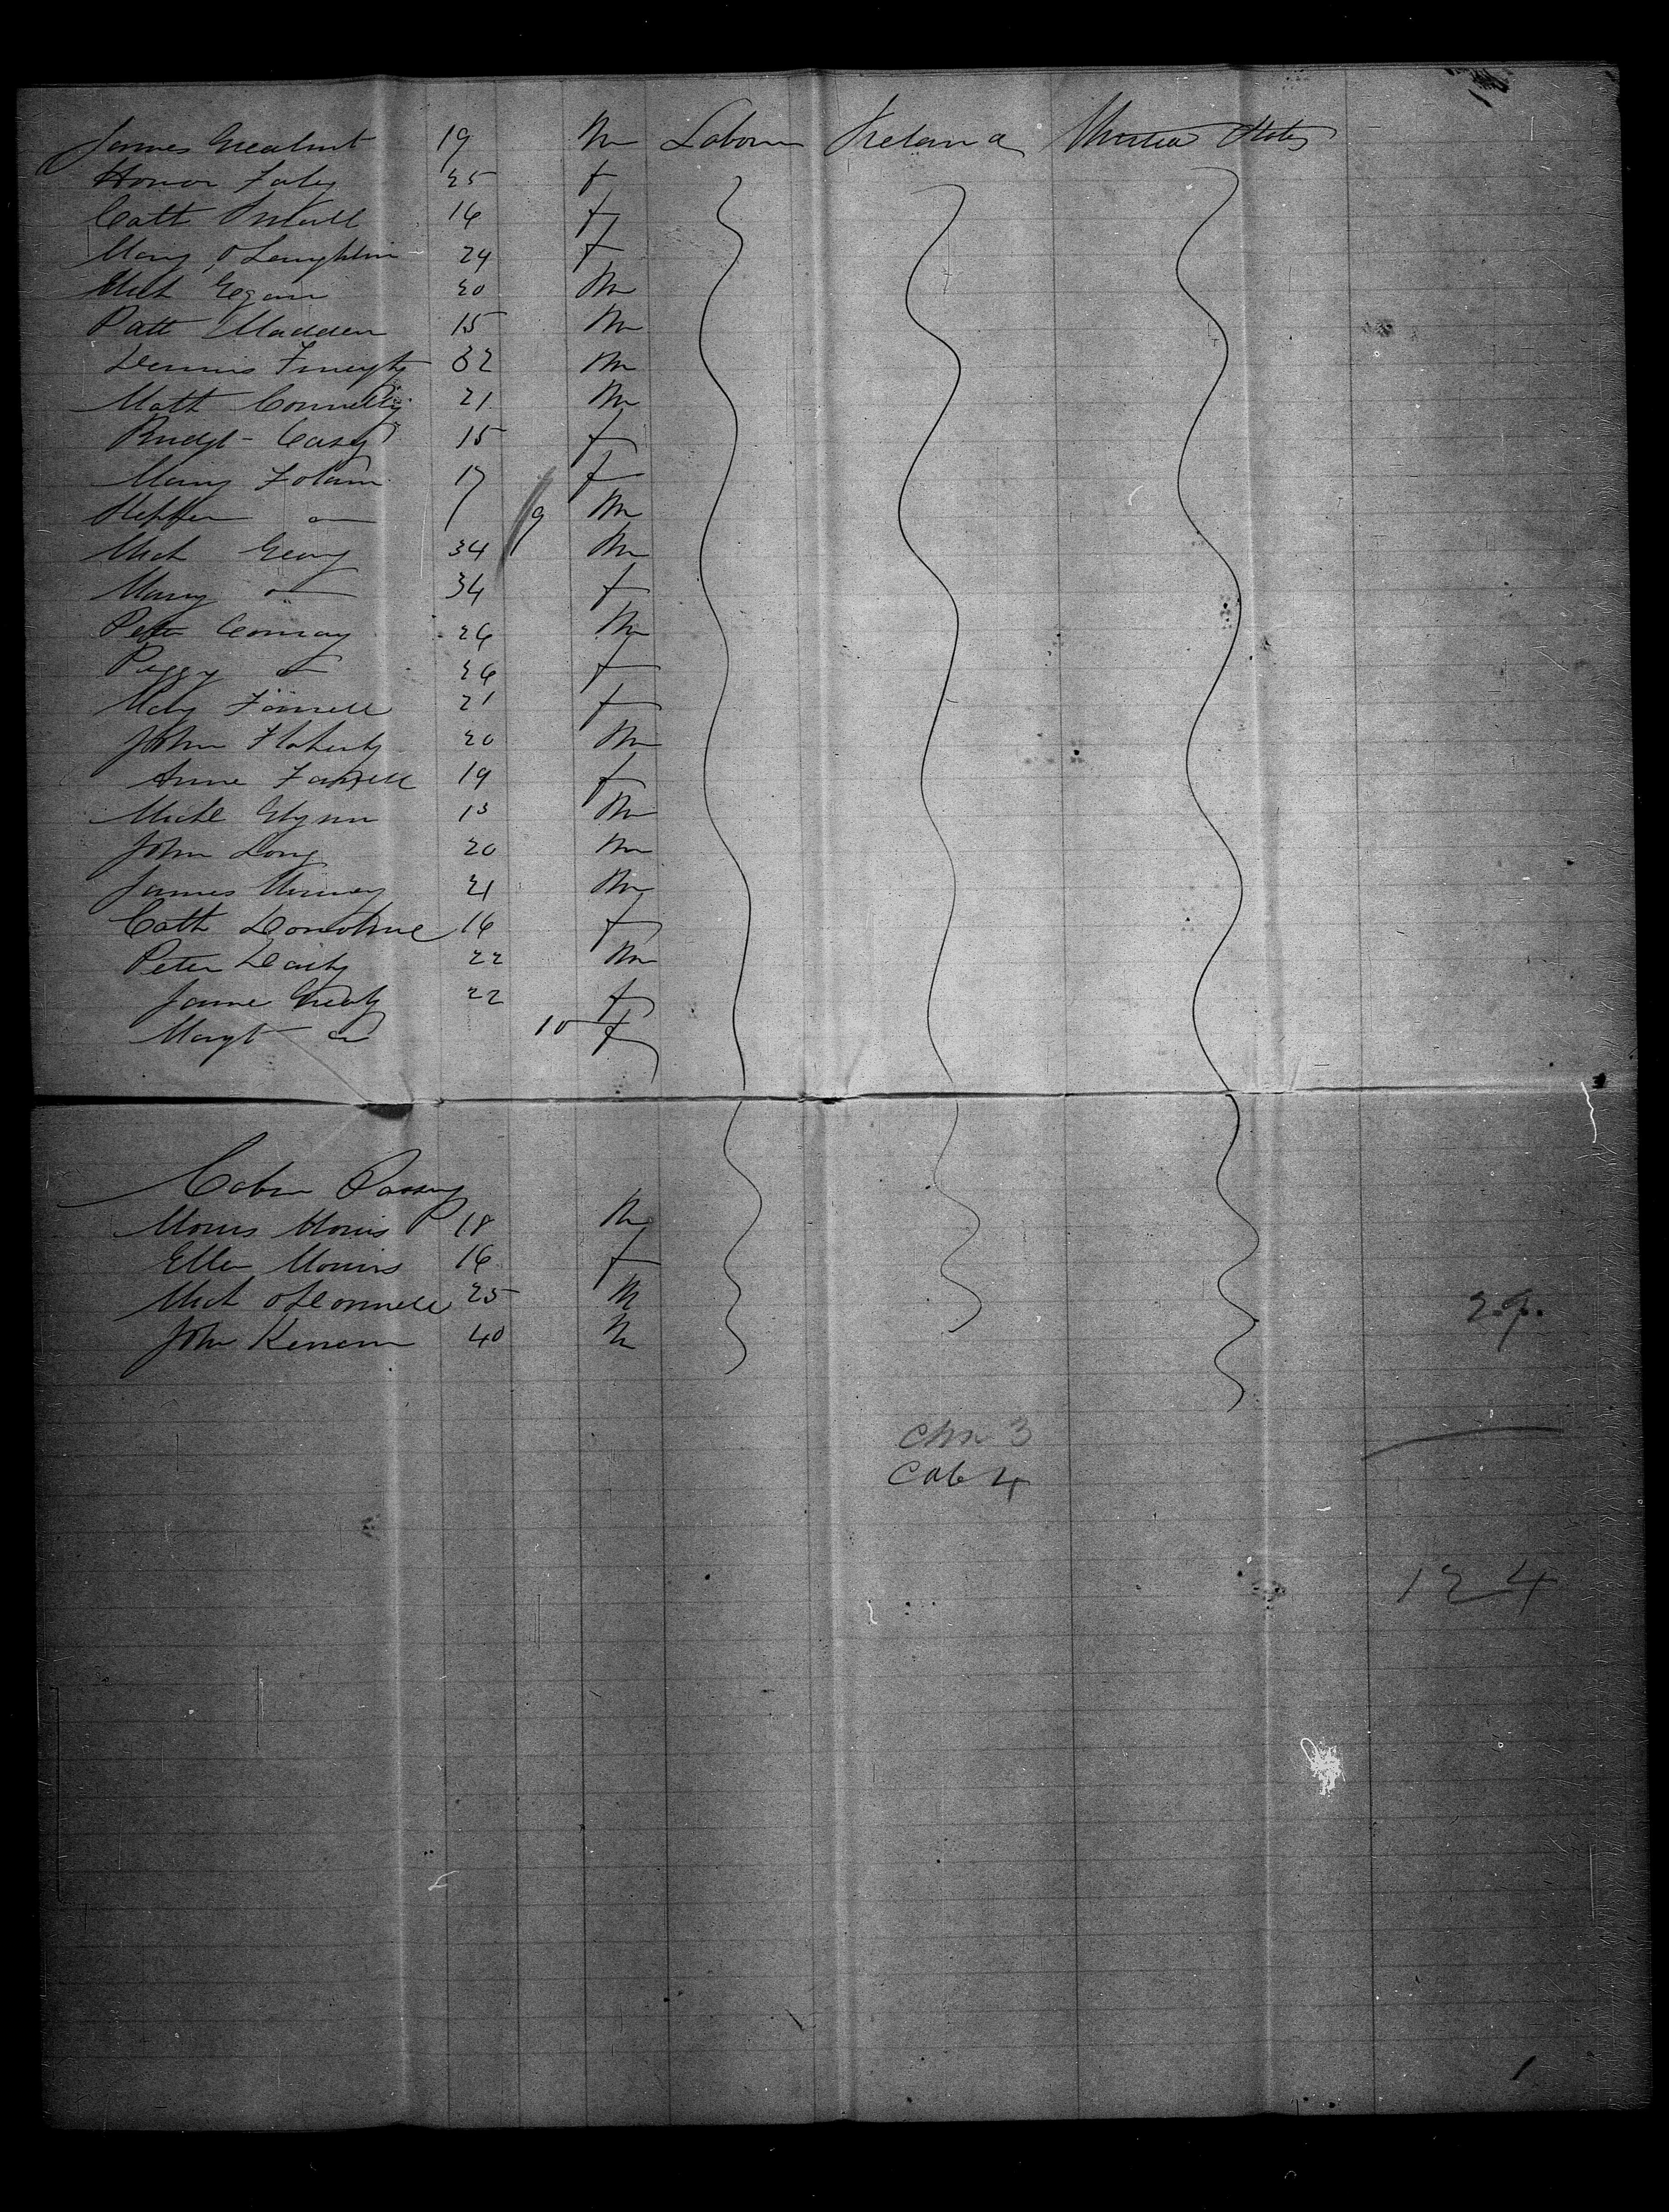 James 19 m Labourer Ireland United States
Honor Faley 25 f
Cath 16 f
Mary O'Laughlin 24 f
Mich Egan 20 m
Patt Madden 15 m
Dennis 32 m
Matt Connelly 21 m
Bridgt Casey 15 f
Mary Folam 17 f
do 9 m
Mich Geary 34 m
Mary do 34 f
Peter Conroy 26 m
Peggy do 26 f
Mary 21 f
John Flaherty 20 m
Anne Farrell 19 f
Michl Glynn 13 m
John Long 20 m
James 21 m
Cath Donohue 16 f
Peter 22 m
Jane Grealy 22 f
Margt do 10 f
Cabin Passeng
Morris Morris 18 m
Ellen Morris 16 f
Mich O'Connell 25 m
John 40 m
29.
Chn 3
Cab 4
124